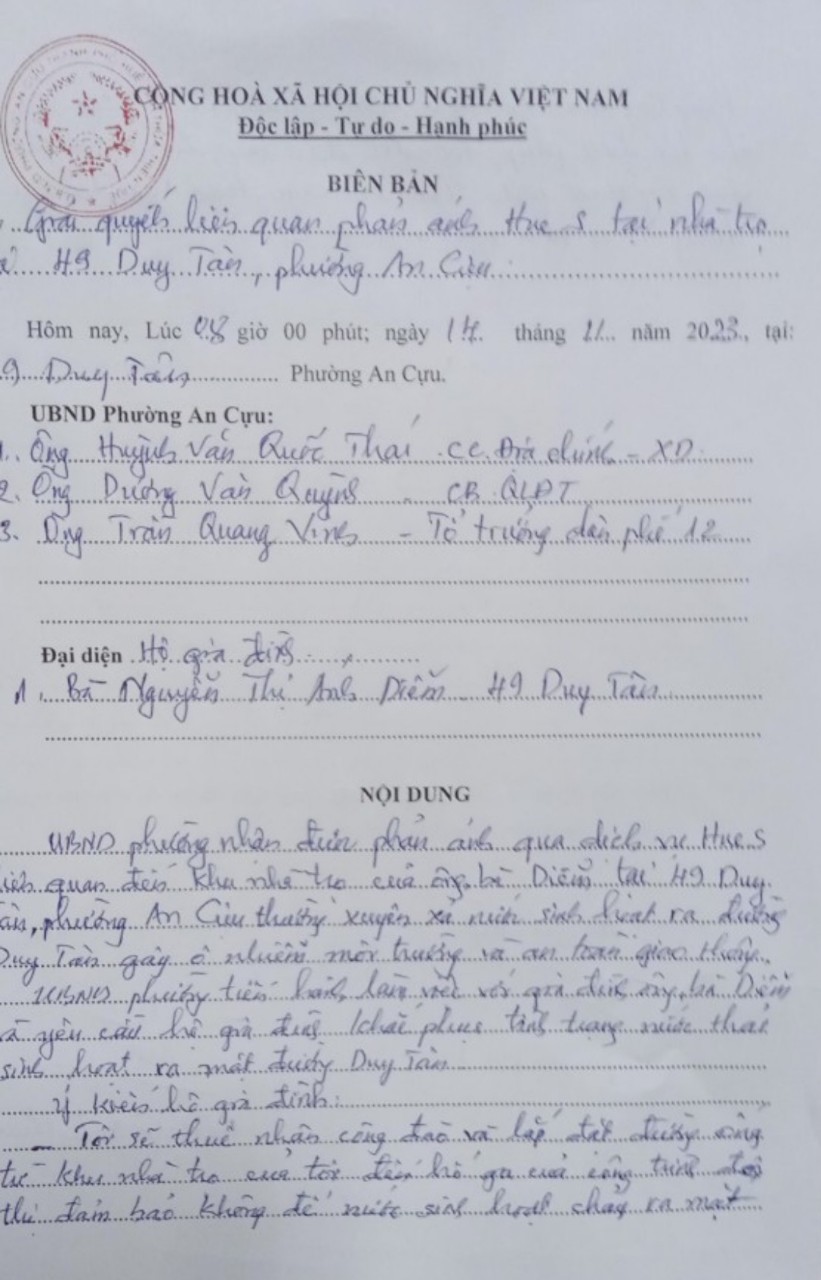 CỘNG HOÀ XÃ HỘI CHỦ NGHĨA VIỆT NAM
Độc lập - Tự do - Hạnh phúc
BIÊN BẢN
Giải quyết liên quan phản ánh Hue S tại nhà trọ
49 Duy Tân, phường An Cựu
Hôm nay, Lúc 08 giờ 00 phút; ngày 14 tháng 11 năm 2023, tại:
9 Duy Tân Phường An Cựu.
UBND Phường An Cựu:
1. Ông Huỳnh Văn Quốc Thái CC. Địa chính - XD
2. Ông Dương Văn Quỳnh - CB QLĐT
3. Ông Trần Quang Vinh - Tổ trưởng dân phố 12
Đại diện Hộ gia đình
1. Bà Nguyễn Thị Anh Diễm - 49 Duy Tân
NỘI DUNG
UBND phường nhận được phản ánh qua dịch vụ Hue S
liên quan đến khu nhà trọ của ông, bà Diễm tại 49 Duy
Tân, phường An Cựu thường xuyên xả nước sinh hoạt ra đường
Duy Tân gây ô nhiễm môi trường và an toàn giao thông.
UBND phường tiến hành làm việc với gia đình ông, bà Diễm
và yêu cầu hộ gia đình khắc phục tình trạng nước thải
sinh hoạt ra mặt đường Duy Tân
Ý kiến hộ gia đình:
- Tôi sẽ thuê nhân công đào và lắp đặt đường cống
từ khu nhà trọ của tôi đến hố ga của công trình đô
thị đảm bảo không để nước sinh hoạt chảy ra mặt